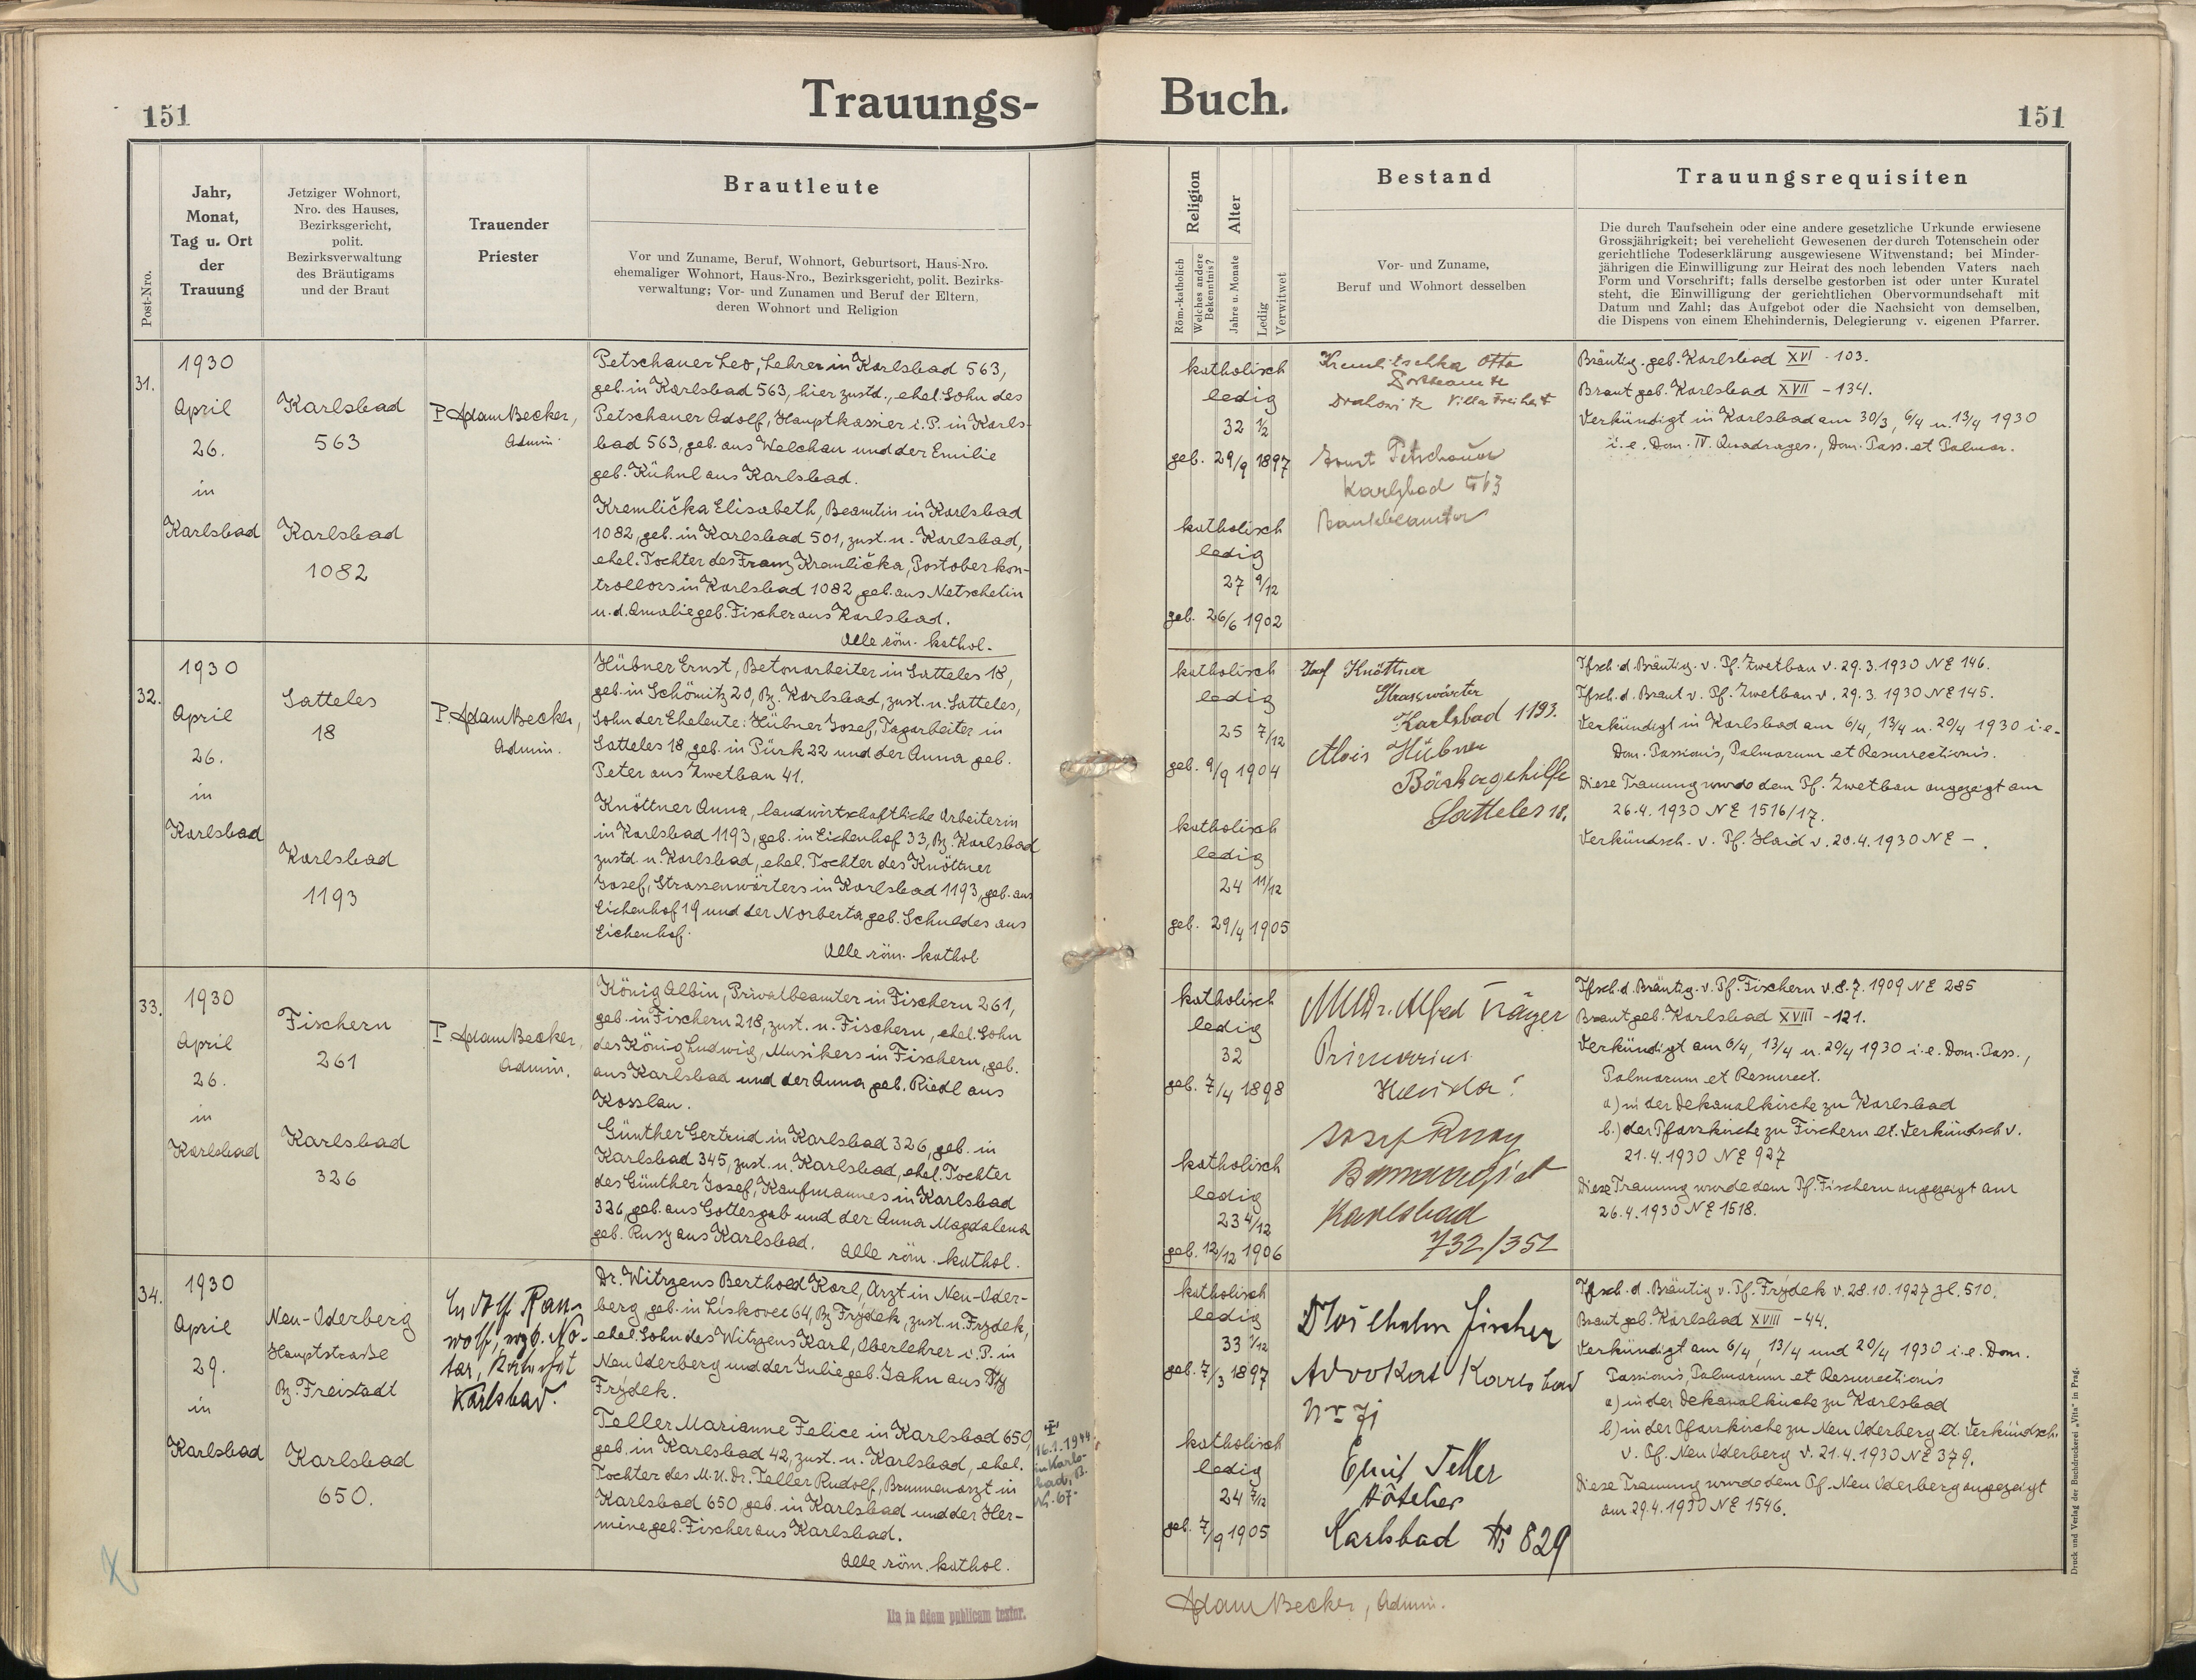 151
Trauungs-
Buch.
151
Post-Nro.
Jahr,
Monat,
Tag u. Ort
der
Trauung
Jetziger Wohnort,
Nro. des Hauses,
Bezirksgericht,
polit.
Bezirksverwaltung
des Bräutigams
und der Braut
Trauender
Priester
Brautleute
Vor und Zuname, Beruf, Wohnort, Geburtsort, Haus-Nro.
ehemaliger Wohnort, Haus-Nro., Bezirksgericht, polit. Bezirks-
verwaltung; Vor- und Zunamen und Beruf der Eltern,
deren Wohnort und Religion
Religion
Röm.-katholisch
Welches andere
Bekenntnis?
Alter
Jahre u. Monate
Ledig
Verwitwet
Bestand
Vor- und Zuname,
Beruf und Wohnort desselben
Trauungsrequisiten
Die durch Taufschein oder eine andere gesetzliche Urkunde erwiesene
Grossjährigkeit; bei verehelicht Gewesenen der durch Totenschein oder
gerichtliche Todeserklärung ausgewiesene Witwenstand; bei Minder-
jährigen die Einwilligung zur Heirat des noch lebenden Vaters nach
Form und Vorschrift; falls derselbe gestorben ist oder unter Kuratel
steht, die Einwilligung der gerichtlichen Obervormundschaft mit
Datum und Zahl; das Aufgebot oder die Nachsicht von demselben,
die Dispens von einem Ehehindernis, Delegierung v. eigenen Pfarrer.
31.
1930
April
26.
in
Karlsbad
Karlsbad
563
Karlsbad
1082
P. Adam Becker,
Admin.
Petschauer Leo, Lehrer in Karlsbad 563,
geb. in Karlsbad 563, hier zustd., ehel. Sohn des
Petschauer Adolf, Hauptkassier i. P. in Karls-
bad 563, geb. aus Welchau und der Emilie
geb. Kühnl aus Karlsbad.
Kremlička Elisabeth, Beamtin in Karlsbad
1082, geb. in Karlsbad 501, zust. n. Karlsbad,
ehel. Tochter des Franz Kremlička, Postoberkon-
trollors in Karlsbad 1082, geb. aus Netschetin
u. d. Amalie geb. Fischer aus Karlsbad.
Alle röm. kathol.
katholisch
ledig
32 1/2
geb. 29/9 1897
katholisch
ledig
27 9/12
geb. 26/6 1902
Kremlitschka Otto
Postbeamte
Drahowitz Villa Freiheit
Ernst Petschauer
Karlsbad 563
Bankbeamter
Bräutig. geb. Karlsbad XVI - 103.
Braut geb. Karlsbad XVII - 134.
Verkündigt in Karlsbad am 30/3, 6/4 u. 13/4 1930
i. e. Dom. IV. Quadrages., Dom. Pass. et Palmar.
32.
1930
April
26.
in
Karlsbad
Satteles
18
Karlsbad
1193
P. Adam Becker,
Admin.
Hübner Ernst, Betonarbeiter in Satteles 18,
geb. in Schömitz 20, Bz. Karlsbad, zust. n. Satteles,
Sohn der Eheleute: Hübner Josef, Tagarbeiter in
Satteles 18, geb. in Pürk 22 und der Anna geb.
Peter aus Zwetbau 41.
Knöttner Anna, landwirtschaftliche Arbeiterin
in Karlsbad 1193, geb. in Eichenhof 33, Bz. Karlsbad
zustd. n. Karlsbad, ehel. Tochter des Knöttner
Josef, Strassenwärters in Karlsbad 1193, geb. aus
Eichenhof 19 und der Norberta geb. Schuldes aus
Eichenhof.
Alle röm. kathol
katholisch
ledig
25 7/12
geb. 9/9 1904
katholisch
ledig
24 11/12
geb. 29/4 1905
Josf Knöttner
Straswärter
Karlsbad 1193.
Alois Hübner
Bäckergehilfe
Satteles 18.
Tfsch. d. Bräutig. v. Pf. Zwetbau v. 29.3.1930 NE 146.
Tfsch. d. Braut v. Pf. Zwetbau v. 29.3.1930 NE 145.
Verkündigt in Karlsbad am 6/4, 13/4 u. 20/4 1930 i. e.
Dom. Passionis, Palmarum et Resurrectionis.
Diese Trauung wurde dem Pf. Zwetbau angezeigt am
26.4.1930 NE 1516/17.
Verkündsch. v. Pf. Haid v. 20.4.1930 NE -.
33.
1930
April
26.
in
Karlsbad
Fischern
261
Karlsbad
326
P. Adam Becker,
Admin.
König Albin, Privatbeamter in Fischern 261,
geb. in Fischern 218, zust. n. Fischern, ehel. Sohn
des König Ludwig, Musikers in Fischern, geb.
aus Karlsbad und der Anna geb. Riedl aus
Kosslau.
Günther Gertrud in Karlsbad 326, geb. in
Karlsbad 345, zust. n. Karlsbad, ehel. Tochter
des Günther Josef, Kaufmannes in Karlsbad
326, geb. aus Gottesgab und der Anna Magdalena
geb. Rusy aus Karlsbad.
Alle röm. kathol.
katholisch
ledig
32
geb. 7/4 1898
katholisch
ledig
23 4/12
geb. 12/12 1906
MUDr. Alfred Träger
Primarius
Josef
Karlsbad
732/351
Tfsch. d. Bräutig. v. Pf. Fischern v. 8.7.1909 NE 285
Braut geb. Karlsbad XVIII - 121.
Verkündigt am 6/4, 13/4 u. 20/4 1930 i. e. Dom. Pass.,
Palmarum et Resurrect.
a) in der Dekanalkirche zu Karlsbad
b.) der Pfarrkirche zu Fischern lt. Verkündsch v.
21.4.1930 NE 927
Diese Trauung wurde dem Pf. Fischern angezeigt am
26.4.1930 NE 1518.
34.
1930
April
29.
in
Karlsbad
Neu-Oderberg
Hauptstraße
Bz. Freistadt
Karlsbad
650.
Karlsbad.
Dr. Witrzens Berthold Karl, Arzt in Neu-Oder-
berg geb. in Lískovec 64, Bz Frýdek, zust. n. Frýdek,
ehel. Sohn des Witrzens Karl, Oberlehrer i. P. in
Neu Oderberg und der Julie geb. Jahn aus
Frýdek.
Teller Marianne Felice in Karlsbad 650,
geb. in Karlsbad 42, zust. n. Karlsbad, ehel.
Tochter des M. U. Dr. Teller Rudolf, Brunnenarzt in
Karlsbad 650, geb. in Karlsbad und der Her-
mine geb. Fischer aus Karlsbad.
Alle röm. kathol.
16.1.1944
in Karls-
bad, B.
N. 67.
katholisch
ledig
33 1/12
geb. 7/3 1897
katholisch
ledig
24 7/12
geb. 7/9 1905
Dr Wilhelm Fischer
Advokat Karlsbad
Emil Teller
Hôtelier
Karlsbad No 829
Tfsch. d. Bräutig v. Pf. Frýdek v. 28.10.1927 Zl. 510.
Braut geb. Karlsbad XVIII - 44.
Verkündigt am 6/4, 13/4 und 20/4 1930 i. e. Dom.
Passionis, Palmarum et Resurrectionis
a) in der Dekanalkirche zu Karlsbad
b) in der Pfarrkirche zu Neu Oderberg lt. Verkündsch.
v. Pf. Neu Oderberg v. 21.4.1930 NE 379.
Diese Trauung wurde dem Pf. Neu Oderberg angezeigt
am 29.4.1930 NE 1546.
Ita in fidem publicam testor.
Adam Becker, Admin.
Druck und Verlag der Buchdruckerei „Vita" in Prag.